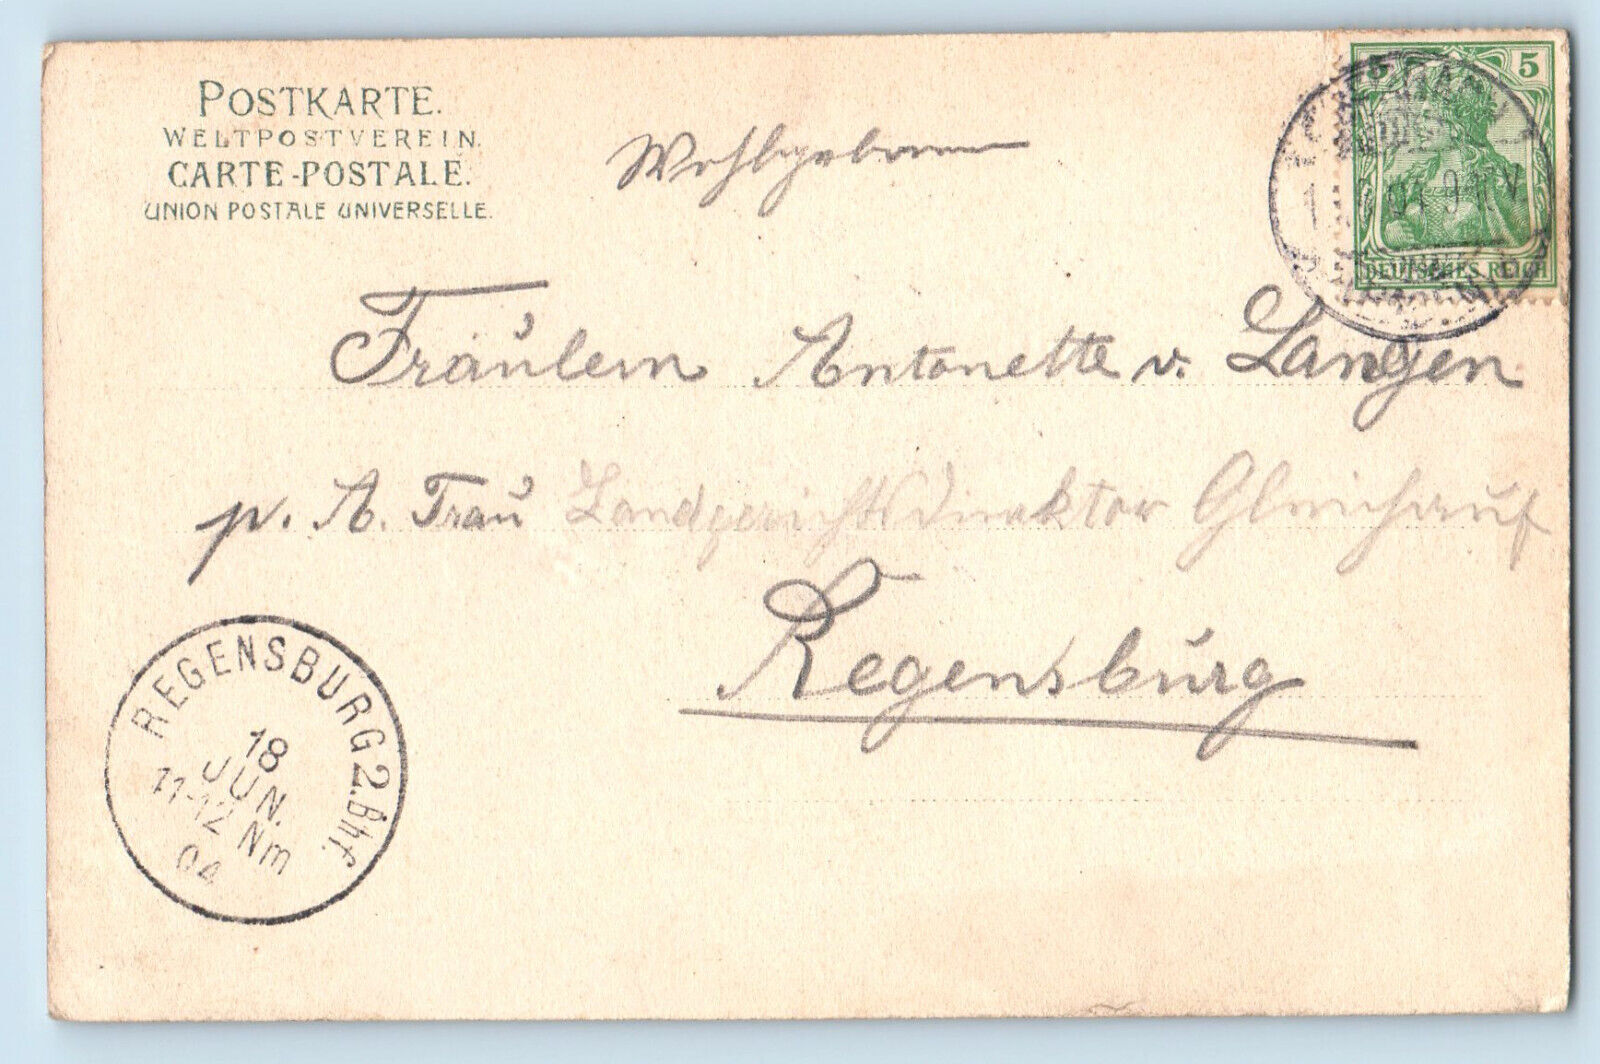 POSTKARTE.
WELTPOSTVEREIN.
CARTE-POSTALE.
UNION POSTALE UNIVERSELLE.
Wohlgeboren
5 5
04 9
DEUTSCHES REICH
Fräulein Antonette v. Langen
p. A. Frau Landgerichtsdirektor Gleichauf
Regensburg
REGENSBURG 2. Bhf.
18
JUN.
11-12 Nm
04